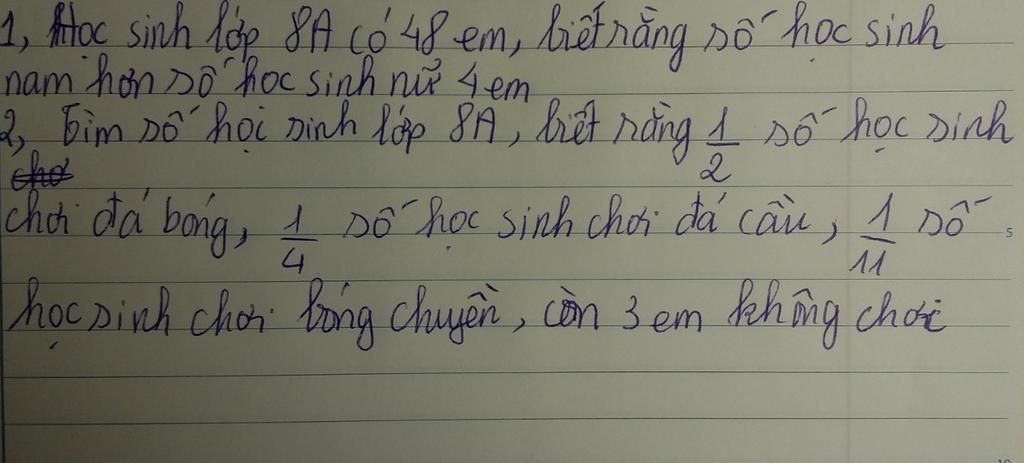 1, Học sinh lớp 8A có 48 em, biết rằng số học sinh
nam hơn số học sinh nữ 4 em
2, Tìm số học sinh lớp 8A, biết rằng 1/2 số học sinh
chơi đá bóng, 1/4 số học sinh chơi đá cầu, 1/11 số
học sinh chơi bóng chuyền, còn 3 em không chơi